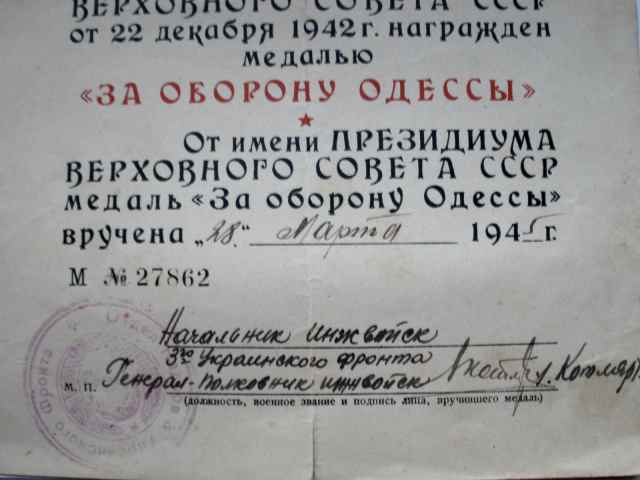 ВЕРХОВНОГО СОВЕТА СССР
от 22 декабря 1942 г. награжден
медалью
«ЗА ОБОРОНУ ОДЕССЫ»
От имени ПРЕЗИДИУМА
ВЕРХОВНОГО СОВЕТА СССР
медаль «За оборону Одессы»
вручена „28.“ Марта 1945 г.
М № 27862
Начальник инжвойск
3го Украинского фронта
м. п. Генерал-полковник инжвойск Котляр
(должность, военное звание и подпись лица, вручившего медаль)